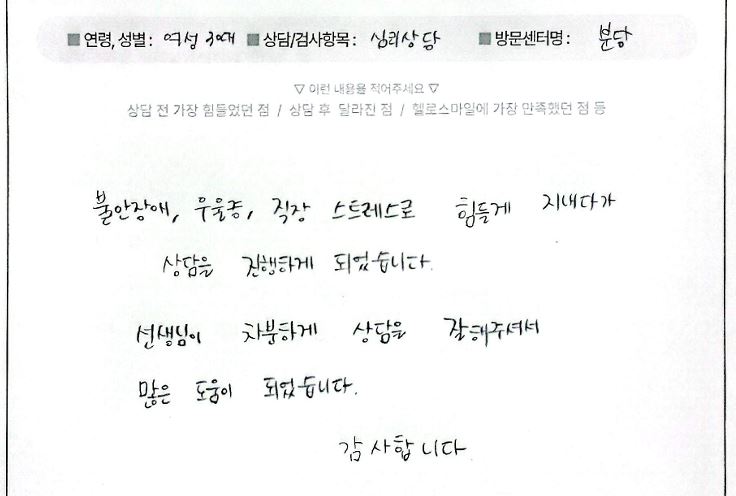 ■ 연령, 성별 : 여성 30대 ■ 상담/검사항목 : 심리상담 ■ 방문센터명 : 분당
▽ 이런 내용을 적어주세요 ▽
상담 전 가장 힘들었던 점 / 상담 후 달라진 점 / 헬로스마일에 가장 만족했던 점 등
불안장애, 우울증, 직장 스트레스로 힘들게 지내다가
상담을 진행하게 되었습니다.
선생님이 차분하게 상담을 잘해주셔서
많은 도움이 되었습니다.
감사합니다